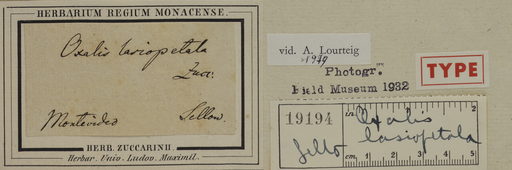 HERBARIUM REGIUM MONACENSE.
Oxalis lasiopetala
Zucc.
Montevideo Sellow.
HERB. ZUCCARINII.
Herbar. Univ. Ludov. Maximil.
vid. A. Lourteig
1979
Photogr.
Field Museum 1932
TYPE
19194
in. 1 2
Oxalis
lasiopetala
Sello
cm. 1 2 3 4 5